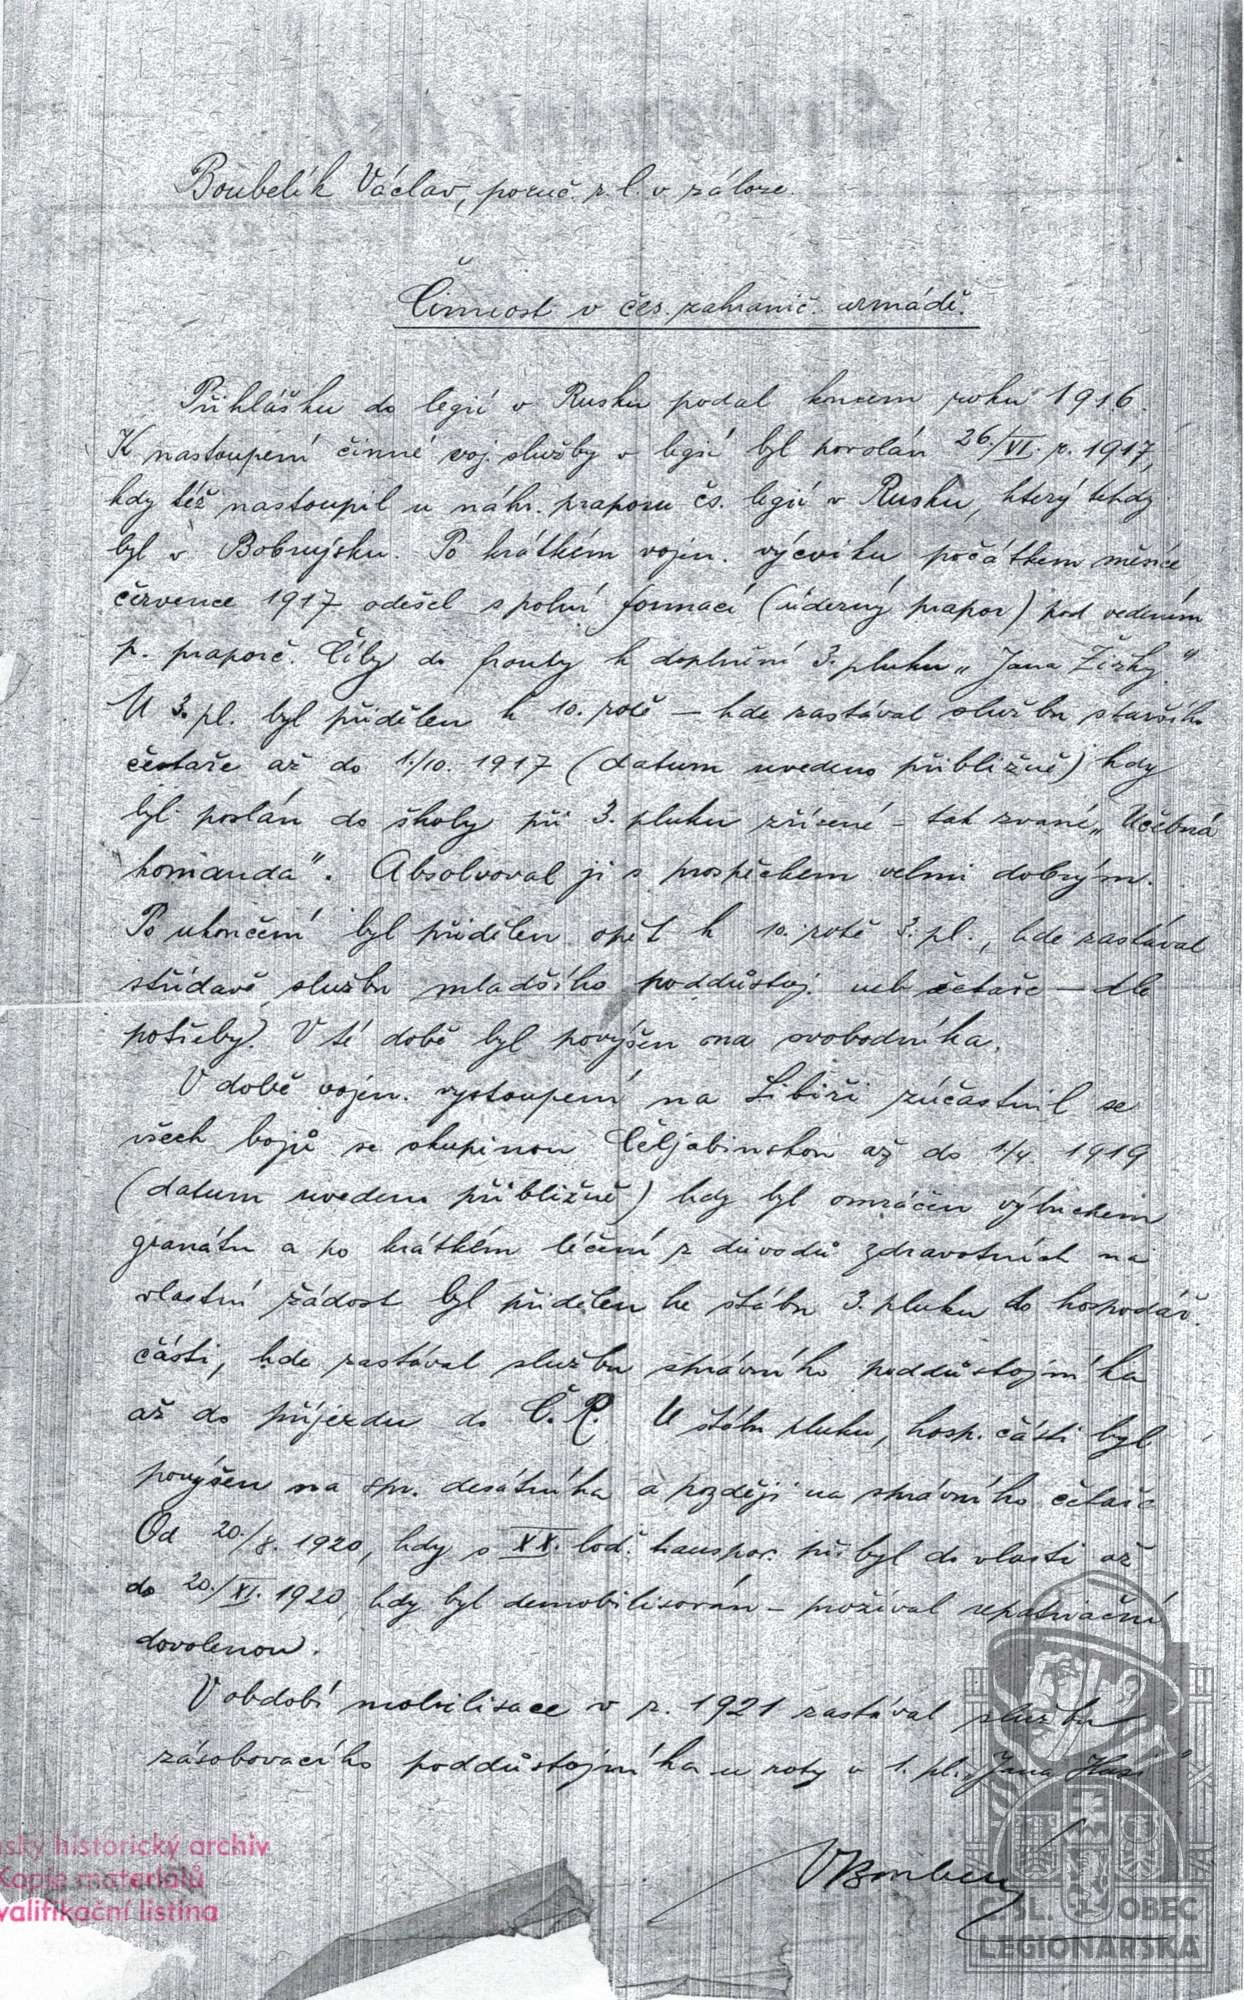 Boubelík Václav, poruč. r. l. v záloze.
Činnost v čes. zahranič. armádě.
Přihlášku do legií v Rusku podal koncem roku 1916.
K nastoupení činné voj. služby v legií byl povolán 26./VI. r. 1917,
kdy též nastoupil u náhr. praporu čs. legií v Rusku, který tehdy
byl v Bobrujsku. Po krátkém vojen. výcviku počátkem měsíce
července 1917 odešel s polní formací (úderný prapor) pod vedením
p. praporč. Číly do fronty k doplnění 3. pluku „Jana Žižky."
U 3. pl. byl přidělen k 10. rotě – kde zastával službu staršího
četaře až do 1./10. 1917 (datum uvedeno přibližně) kdy
byl poslán do školy při 3. pluku zřízené – tak zvané „Učebná
komanda". Absolvoval ji s prospěchem velmi dobrým.
Po ukončení byl přidělen opět k 10. rotě 3. pl., kde zastával
střídavě službu mladšího poddůstoj. neb četaře – dle
potřeby. V té době byl povýšen na svobodníka.
V době vojen. vystoupení na Sibiři zúčastnil se
všech bojů se skupinou Čeljabinskou až do 1./4. 1919
(datum uvedeno přibližně) kdy byl omráčen výbuchem
granátu a po krátkém léčení z důvodů zdravotních na
vlastní žádost byl přidělen ke štábu 3. pluku do hospodář.
části, kde zastával službu správního poddůstojníka
až do příjezdu do Č. R. U štábu pluku, hosp. části byl
povýšen na spr. desátníka a později na správního četaře
Od 20./8. 1920, kdy s XX. loď. transpor. přibyl do vlasti až
do 20./XI. 1920, kdy byl demobilisován – prožíval repatriační
dovolenou.
V období mobilisace v r. 1921 zastával službu
zásobovacího poddůstojníka u roty v 1. pl. „Jana Husi"
VBoubelík
historický archiv
Kopie materiálů
valifikační listina
Č. SL. OBEC
LEGIONÁŘSKÁ